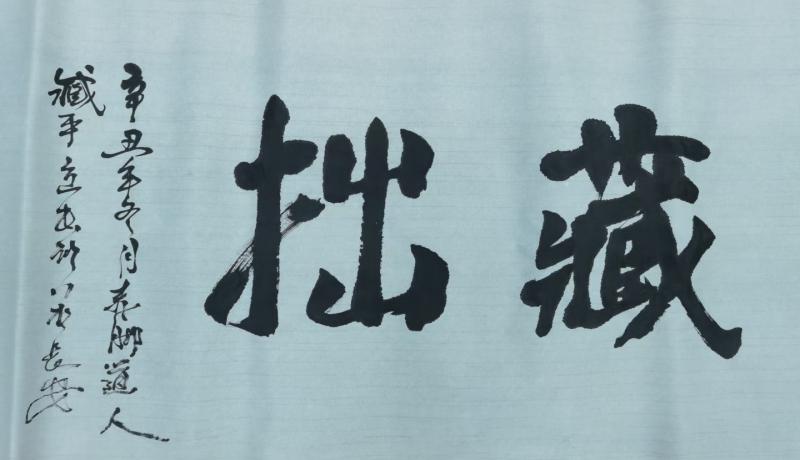 藏拙
辛丑年冬月赤脚道人
藏平立书于长安